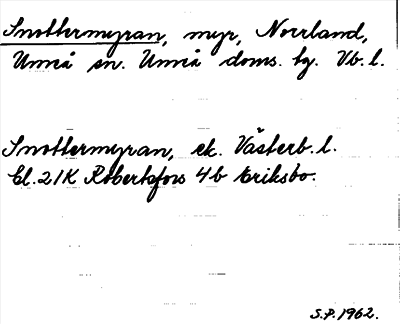 Snottermyran, myr, Norrland,
Umeå sn. Umeå doms. tg. Vb. l.
Snottermyran, ek. Västerb. l.
El. 21K Robertsfors 4b Eriksbo.
S.P. 1962.